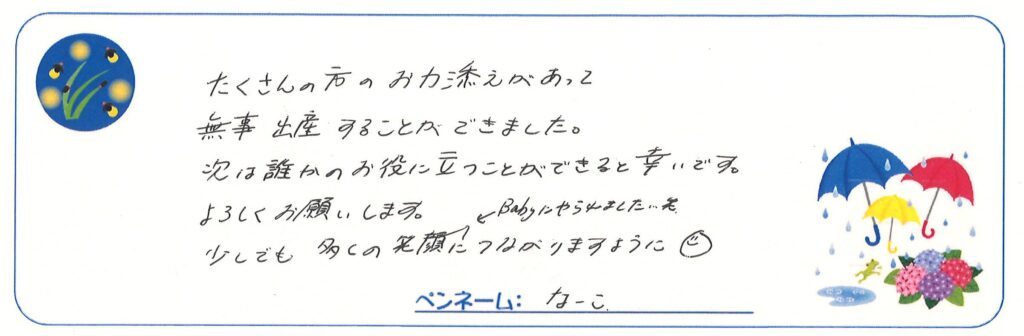 たくさんの方のお力添えがあって
無事出産することができました。
次は誰かのお役に立つことができると幸いです。
よろしくお願いします。
←Babyにやられました、笑
少しでも多くの笑顔につながりますように☺
ペンネーム: なーこ